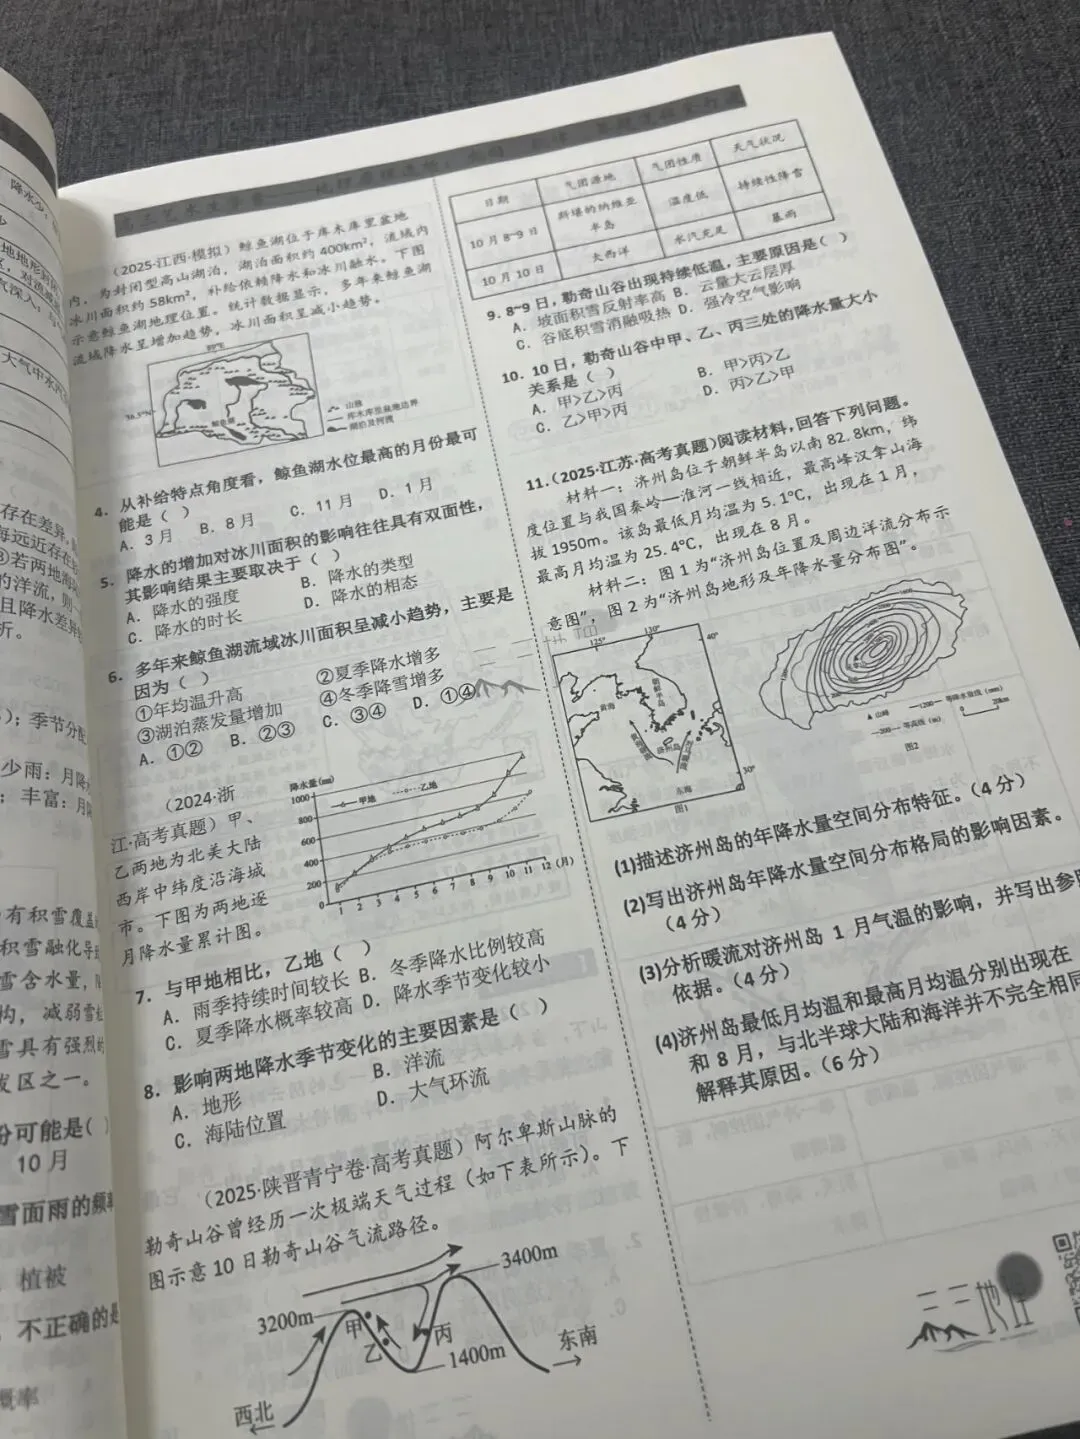 降水少
大气中水
存在差异
海远近存在
③若两地海
的洋流,则
且降水差异
析。
);季节分配
少雨:月降
;丰富:月
有积雪覆盖
积雪融化导
雪含水量,
构,减弱雪
雪具有强烈的
发区之一。
份可能是(
10月
雪面雨的频率
植被
不正确的是
概率
(2025·江西·模拟)鲸鱼湖位于库木库里盆地
内,为封闭型高山湖泊,湖泊面积约400km²,流域内
冰川面积约58km²,补给依赖降水和冰川融水。下图
示意鲸鱼湖地理位置。统计数据显示,多年来鲸鱼湖
流域降水呈增加趋势,冰川面积呈减小趋势。
36.5°N
鲸鱼湖
山脉
库木库里盆地边界
湖泊及河流
4. 从补给特点角度看,鲸鱼湖水位最高的月份最可
能是( )
A. 3月 B. 8月 C. 11月 D. 1月
5. 降水的增加对冰川面积的影响往往具有双面性,
其影响结果主要取决于( )
A. 降水的强度 B. 降水的类型
C. 降水的时长 D. 降水的相态
6. 多年来鲸鱼湖流域冰川面积呈减小趋势,主要是
因为( )
①年均温升高 ②夏季降水增多
③湖泊蒸发量增加 ④冬季降雪增多
A. ①② B. ②③ C. ③④ D. ①④
(2024·浙
江·高考真题)甲、
乙两地为北美大陆
西岸中纬度沿海城
市。下图为两地逐
月降水量累计图。
降水量(mm)
甲地 乙地
1000
800
600
400
200
0
1 2 3 4 5 6 7 8 9 10 11 12 (月)
7. 与甲地相比,乙地( )
A. 雨季持续时间较长 B. 冬季降水比例较高
C. 夏季降水概率较高 D. 降水季节变化较小
8. 影响两地降水季节变化的主要因素是( )
A. 地形 B. 洋流
C. 海陆位置 D. 大气环流
(2025·陕晋青宁卷·高考真题)阿尔卑斯山脉的
勒奇山谷曾经历一次极端天气过程(如下表所示)。下
图示意10日勒奇山谷气流路径。
3400m
3200m
甲
乙
丙
1400m
东南
西北
日期 气团源地 气团性质 天气状况
10月8~9日 斯堪的纳维亚半岛 温度低 持续性降雪
10月10日 大西洋 水汽充足 暴雨
9. 8~9日,勒奇山谷出现持续低温,主要原因是( )
A. 坡面积雪反射率高 B. 云量大云层厚
C. 谷底积雪消融吸热 D. 强冷空气影响
10. 10日,勒奇山谷中甲、乙、丙三处的降水量大小
关系是( )
A. 甲>乙>丙 B. 甲>丙>乙
C. 乙>甲>丙 D. 丙>乙>甲
11.(2025·江苏·高考真题)阅读材料,回答下列问题。
材料一:济州岛位于朝鲜半岛以南82.8km,纬
度位置与我国秦岭—淮河一线相近,最高峰汉拿山海
拔1950m。该岛最低月均温为5.1℃,出现在1月,
最高月均温为25.4℃,出现在8月。
材料二:图1为“济州岛位置及周边洋流分布示
意图”,图2为“济州岛地形及年降水量分布图”。
125° 130° 40°
黄海
朝鲜半岛
济州岛
30°
东海
图1
▲山峰 —1200— 等降水量线(mm)
—200— 等高线(m) 0 20km
图2
(1)描述济州岛的年降水量空间分布特征。(4分)
(2)写出济州岛年降水量空间分布格局的影响因素。
(4分)
(3)分析暖流对济州岛1月气温的影响,并写出参照
依据。(4分)
(4)济州岛最低月均温和最高月均温分别出现在
和8月,与北半球大陆和海洋并不完全相同
解释其原因。(6分)
三三地理